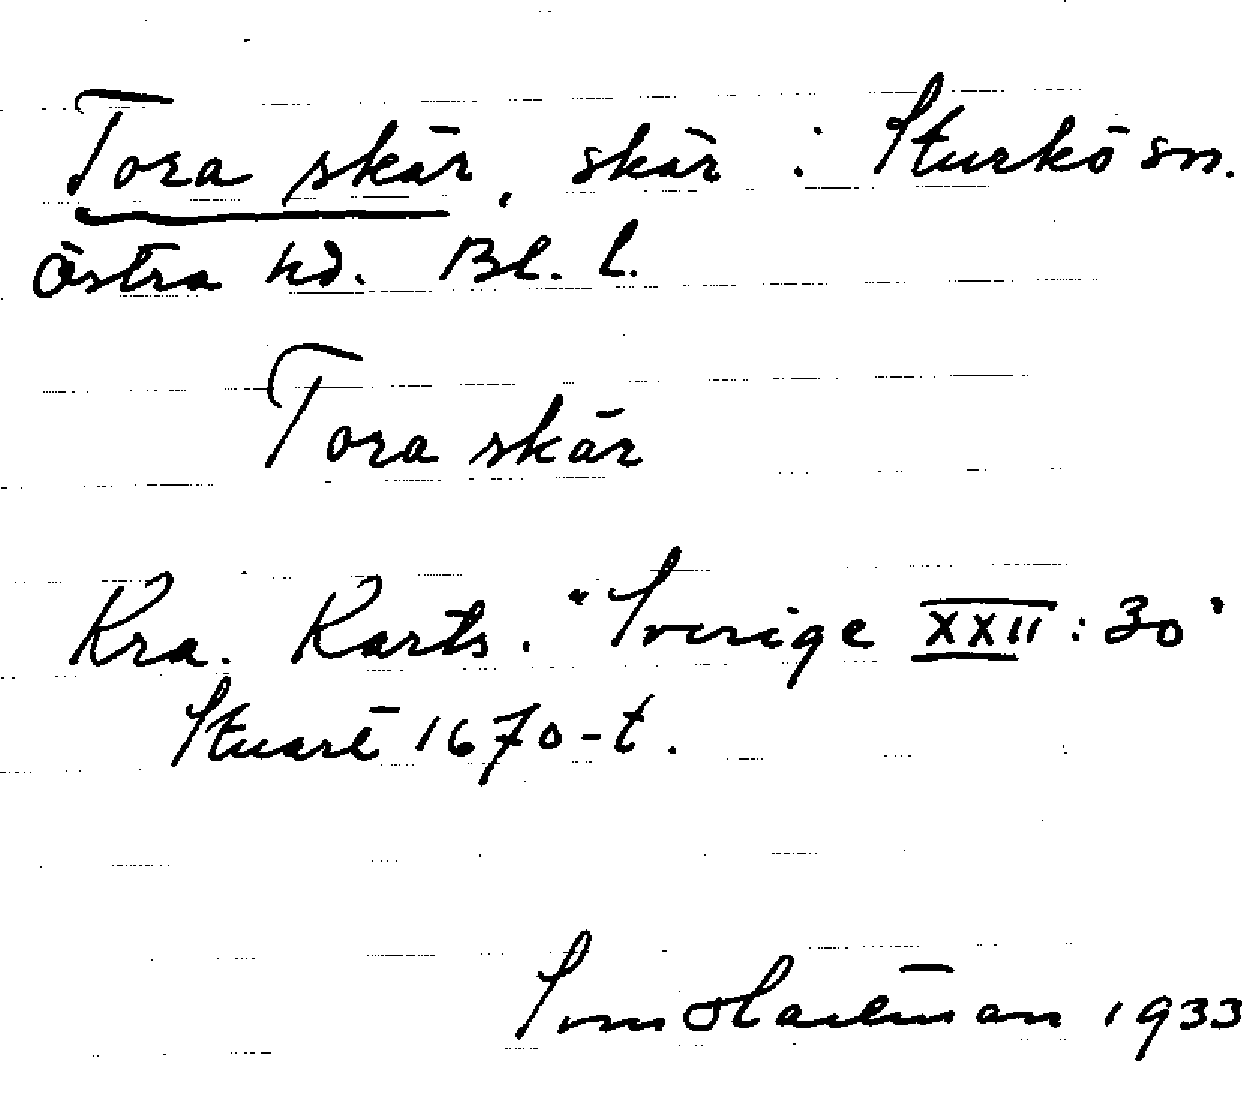 Tora skär, skär i Sturkö sn.
Östra hd. Bl. l.
Tora skär
Kra. Karts. "Sverige XXII:30"
Stuart 1670-t.
1933